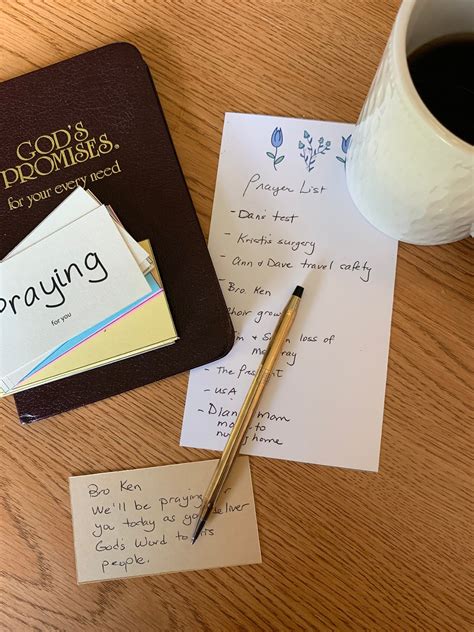 GOD'S
PROMISES®
for your every need
praying
for you
Prayer List
- Dan's test
- Kristi's surgery
- Ann & Dave travel safety
- Bro. Ken
Choir
& loss of
- The President
- USA
- Mom
to
nursing home
Bro Ken
We'll be praying for
you today as you deliver
God's Word to His
people.